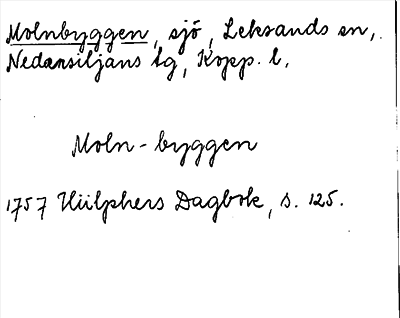 Molnbyggen, sjö, Leksands sn,
Nedansiljans tg, Kopp. l.
Moln-byggen
1757 Hülphers Dagbok, s. 125.